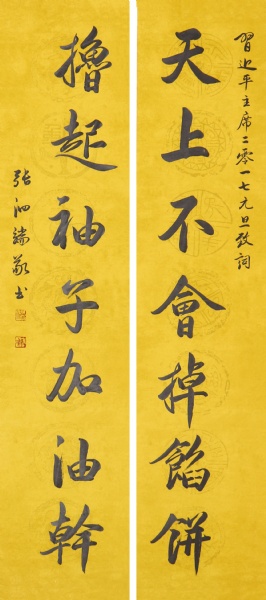 習近平主席二零一七元旦致詞
天上不會掉餡餅
擼起袖子加油幹
張泗端敬書